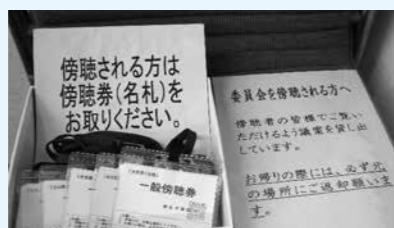 傍聴される方は
傍聴券(名札)を
お取りください。
一般傍聴券
委員会を傍聴される方へ
傍聴者の皆様でご覧い
ただけるよう議案を貸し出
しています。
お帰りの際には、必ず元
の場所にご返却願いま
す。